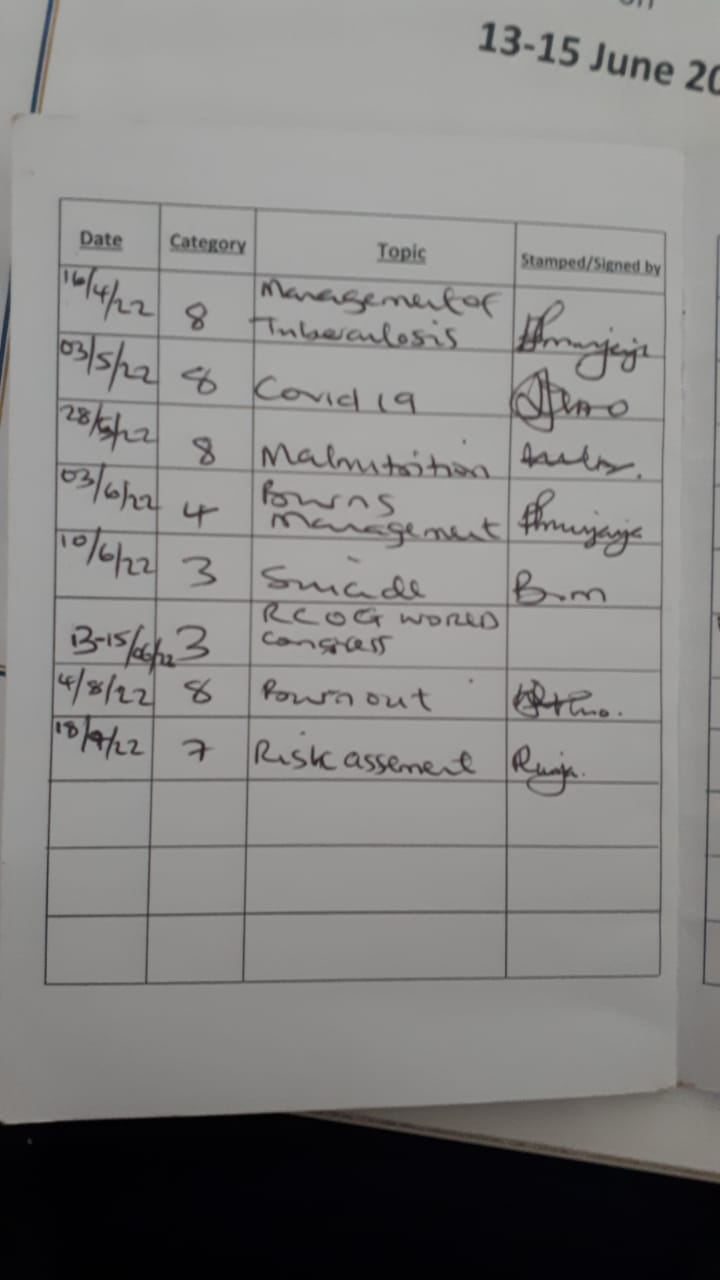 13-15 June 20
Date Category Topic Stamped/Signed by
16/4/22 8 Management of
Tuberculosis
03/5/22 8 Covid 19
28/5/22 8 Malnutrition
03/6/22 4 Powns
management
10/6/22 3 Suicide B.m
13-15/06/22 3 RCOG WORLD
congress
4/8/22 8 Pown out
18/9/22 7 Risk assement